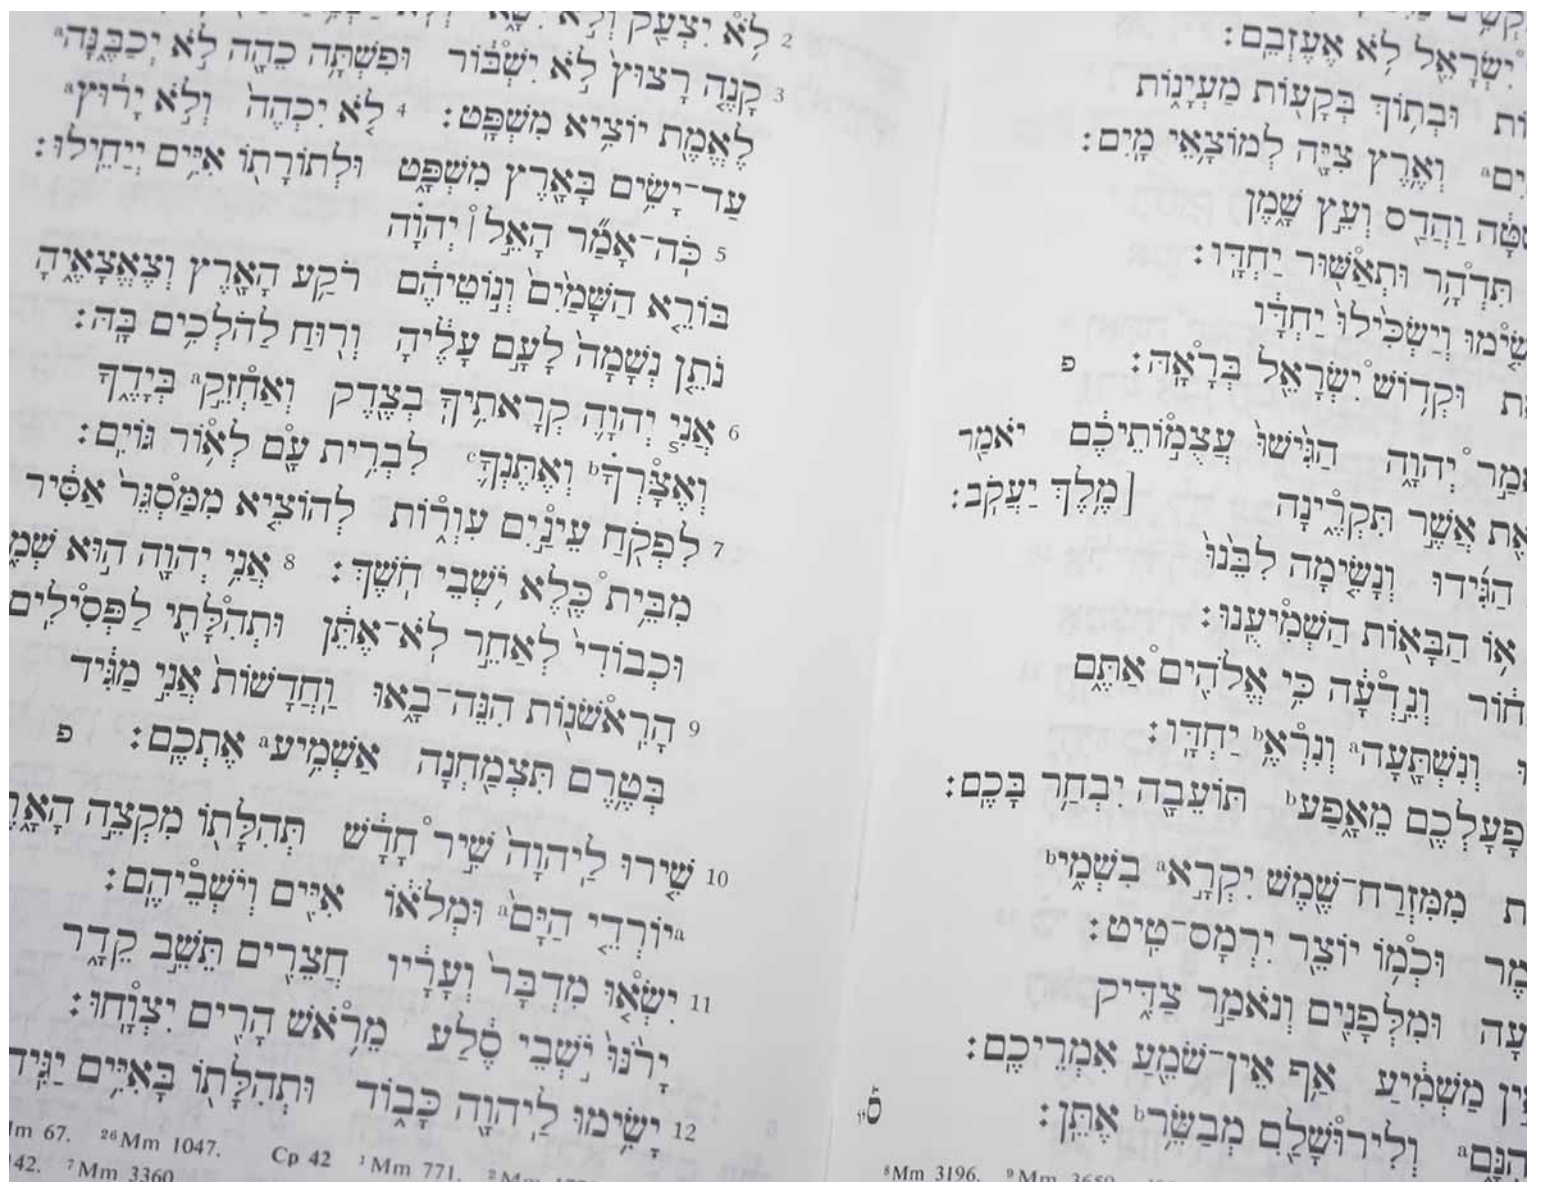 יִשְׂרָאֵ֖ל לֹ֥א אֶעֶזְבֵֽם׃
וּבְת֥וֹךְ בְּקָע֖וֹת מַעְיָנ֑וֹת
וְאֶ֥רֶץ צִיָּ֖ה לְמוֹצָ֥אֵי מָֽיִם׃
וַהֲדַ֖ס וְעֵ֣ץ שָׁ֑מֶן
תִּדְהָ֥ר וּתְאַשּׁ֖וּר יַחְדָּֽו׃
וְיַשְׂכִּ֙ילוּ֙ יַחְדָּ֔ו
וּקְד֥וֹשׁ יִשְׂרָאֵ֖ל בְּרָאָֽהּ׃ פ
יְהוָ֑ה הַגִּ֙ישׁוּ֙ עֲצֻמ֣וֹתֵיכֶ֔ם יֹאמַ֖ר
אֲשֶׁ֣ר תִּקְרֶ֑ינָה [מֶ֥לֶךְ יַעֲקֹֽב׃
הַגִּ֜ידוּ וְנָשִׂ֤ימָה לִבֵּ֙נוּ֙
א֥וֹ הַבָּא֖וֹת הַשְׁמִיעֻֽנוּ׃
וְנֵ֣דְעָ֔ה כִּ֥י אֱלֹהִ֖ים אַתֶּ֑ם
וְנִשְׁתָּ֖עָהᵃ וְנִרְאֶ֥ᵇ יַחְדָּֽו׃
מֵאָ֑פַעᵇ תּוֹעֵבָ֖ה יִבְחַ֥ר בָּכֶֽם׃
מִמִּזְרַח־שֶׁ֖מֶשׁ יִקְרָ֣אᵃ בִשְׁמִ֑יᵇ
וּכְמ֥וֹ יוֹצֵ֖ר יִרְמָס־טִֽיט׃
וּמִלְּפָנִ֖ים וְנֹאמַ֣ר צַדִּ֑יק
מַשְׁמִ֔יעַ אַ֥ף אֵין־שֹׁמֵ֖עַ אִמְרֵיכֶֽם׃
וְלִירוּשָׁלִַ֖ם מְבַשֵּׂ֥רᵇ אֶתֵּֽן׃
⁸Mm 3196.
2 לֹ֥א יִצְעַ֖ק וְלֹ֣א יִשָּׂ֑א
3 קָנֶ֤ה רָצוּץ֙ לֹ֣א יִשְׁבּ֔וֹר וּפִשְׁתָּ֥ה כֵהָ֖ה לֹ֣א יְכַבֶּ֑נָּהᵃ
לֶאֱמֶ֖ת יוֹצִ֥יא מִשְׁפָּֽט׃ 4 לֹ֤א יִכְהֶה֙ וְלֹ֣א יָר֔וּץᵃ
עַד־יָשִׂ֥ים בָּאָ֖רֶץ מִשְׁפָּ֑ט וּלְתוֹרָת֖וֹ אִיִּ֥ים יְיַחֵֽילוּ׃
5 כֹּֽה־אָמַ֞ר הָאֵ֣ל ׀ יְהוָ֗ה
בּוֹרֵ֤א הַשָּׁמַ֙יִם֙ וְנ֣וֹטֵיהֶ֔ם רֹקַ֥ע הָאָ֖רֶץ וְצֶאֱצָאֶ֑יהָ
נֹתֵ֤ן נְשָׁמָה֙ לָעָ֣ם עָלֶ֔יהָ וְר֖וּחַ לַהֹלְכִ֥ים בָּֽהּ׃
6 אֲנִ֧י יְהוָ֛ה קְרָאתִ֥יךָֽ בְצֶ֖דֶק וְאַחְזֵ֣קᵃ בְּיָדֶ֑ךָ
וְאֶצָּרְךָ֗ᵇ וְאֶתֶּנְךָ֛ᶜ לִבְרִ֥ית עָ֖ם לְא֥וֹר גּוֹיִֽם׃
7 לִפְקֹ֖חַ עֵינַ֣יִם עִוְר֑וֹת לְהוֹצִ֤יא מִמַּסְגֵּר֙ אַסִּ֔יר
מִבֵּ֥ית כֶּ֖לֶא יֹ֥שְׁבֵי חֹֽשֶׁךְ׃ 8 אֲנִ֥י יְהוָ֖ה ה֣וּא
וּכְבוֹדִי֙ לְאַחֵ֣ר לֹֽא־אֶתֵּ֔ן וּתְהִלָּתִ֖י לַפְּסִילִֽים
9 הָרִֽאשֹׁנ֖וֹת הִנֵּה־בָ֑אוּ וַֽחֲדָשׁוֹת֙ אֲנִ֣י מַגִּ֔יד
בְּטֶ֥רֶם תִּצְמַ֖חְנָה אַשְׁמִ֥יעᵃ אֶתְכֶֽם׃ פ
10 שִׁ֤ירוּ לַֽיהוָה֙ שִׁ֣יר חָדָ֔שׁ תְּהִלָּת֖וֹ מִקְצֵ֣ה
ᵃיוֹרְדֵ֤י הַיָּם֙ᵃ וּמְלֹא֔וֹ אִיִּ֖ים וְיֹשְׁבֵיהֶֽם׃
11 יִשְׂא֤וּ מִדְבָּר֙ וְעָרָ֔יו חֲצֵרִ֖ים תֵּשֵׁ֣ב קֵדָ֑ר
יָרֹ֙נּוּ֙ יֹ֣שְׁבֵי סֶ֔לַע מֵרֹ֥אשׁ הָרִ֖ים יִצְוָֽחוּ׃
12 יָשִׂ֥ימוּ לַֽיהוָ֖ה כָּב֑וֹד וּתְהִלָּת֖וֹ בָּאִיִּ֥ים
67. ²⁶Mm 1047. Cp 42 ¹Mm 771.
42. ⁷Mm 3360.